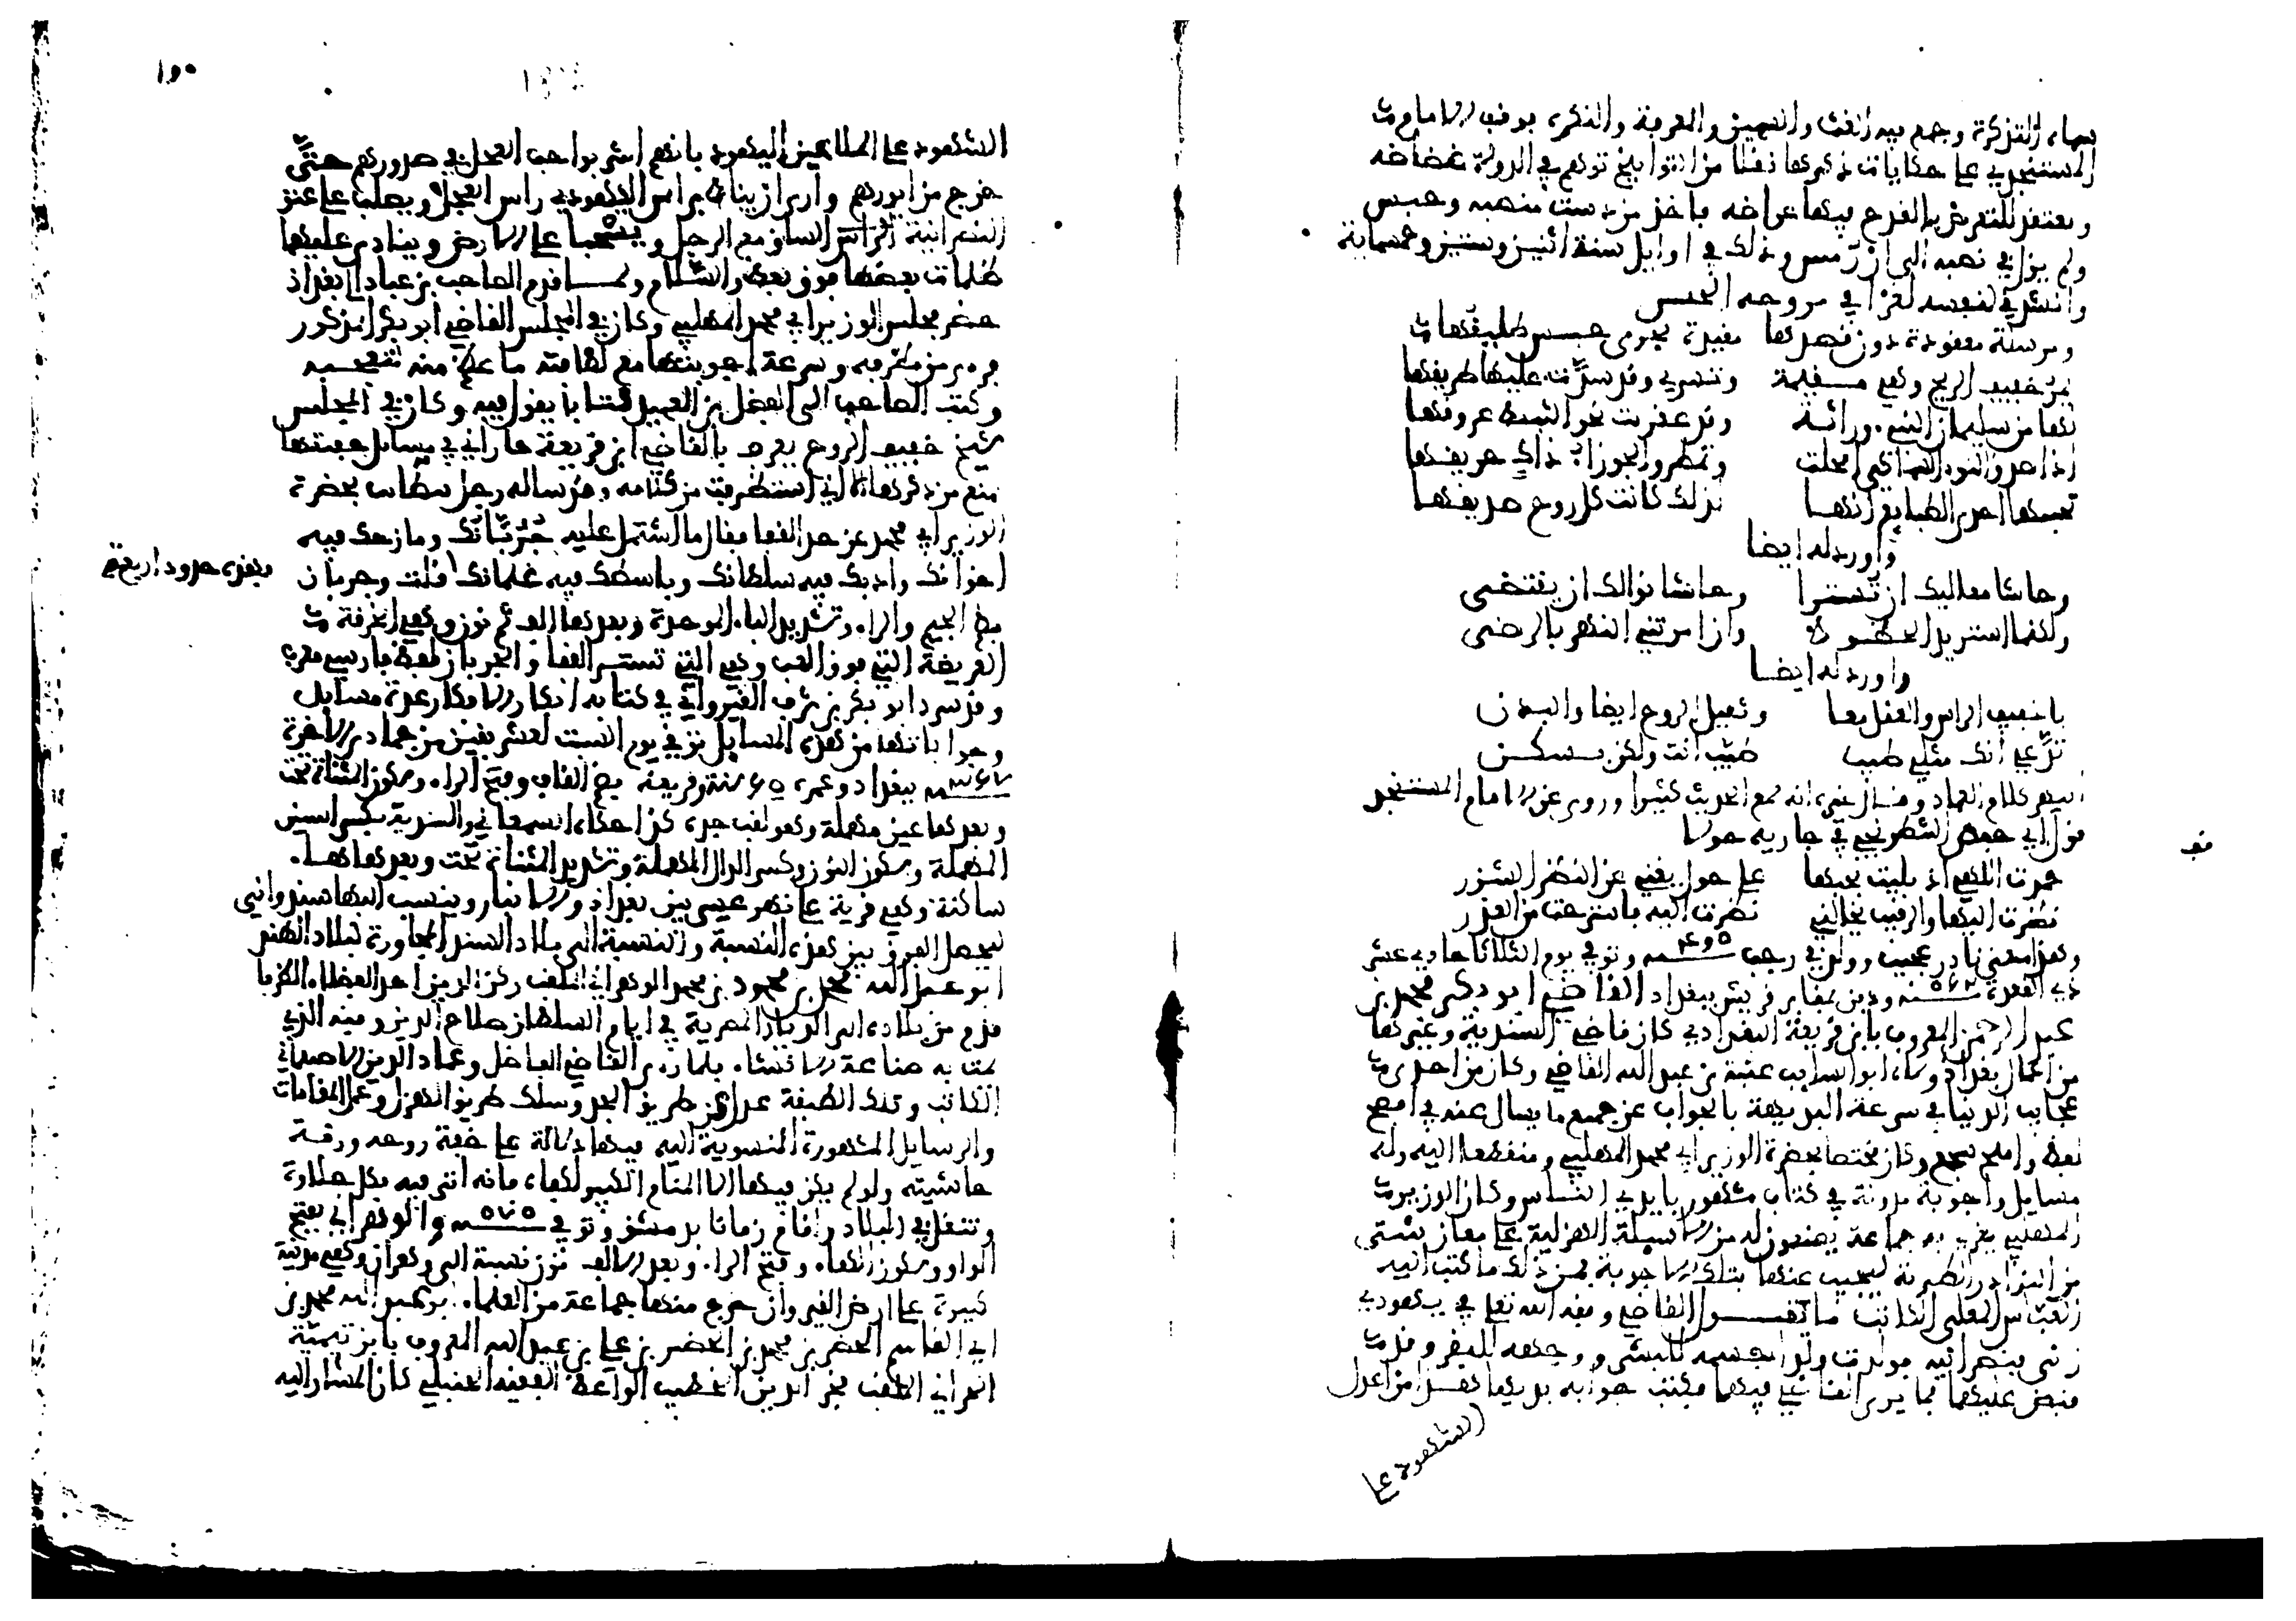 سماه التذكرة وجمع فيه الغث والسمين والمعرفة والنكرة فوقف الامام
المستنجد على حكايات ذكرها نقلا من التواريخ توهم في الدولة غضاضة
ويعتقد للتعرض بالقدح فيها عراضه فاخذ من دست منصبه وحبس
ولم يزل في نصبه الى ان رمس وذلك في اوايل سنة اثنين وستين وخمسماية
وانشدني لنفسه لغزا في مروحة الخيش
ومرسلة معقودة دون قصدها مقيدة تجري حبيس طليقها
تمر خفيف الريح وهي مقيمة وتسري وقد سدت عليها طريقها
لها من سليمان النبي وراثة وقد عزيت نحو النبيط عروقها
اذا صدق النوء السماكي امحلت وتمطر والجوزاء ذاك حريقها
تحيتها احدى الطبايع انها لذلك كانت كل روح صديقها
واورد له ايضا
وحاشا معاليك ان تستزا د وحاشا نوالك ان يقتضى
ولكنما استزيد الحظو ظ وان امرتني النهى بالرضى
واورد له ايضا
يا خفيف الراس والعقل معا وثقيل الروح ايضا والبدن
تدعي انك مثلي طيب طيب انت ولكن بلبن
انتهى كلام العماد وقال غيره انه سمع الحديث كثيرا وروى عن الامام المستنجد
قول ابي حفص الشطرنجي في جارية حولا
حمدت الاهي اذ بليت بحبها على حول يغني عن النظر الشزر
نظرت اليها والرقيب يخالني نظرت اليه فاسترحت من العذر
وهذا معنى نادر عجيب وولد في رجب سنة ٤٩٥ وتوفي يوم الثلاثا حادي عشر
ذي القعدة سنة ٥٦٢ ودفن بمقابر قريش ببغداد القاضي ابو بكر محمد بن
عبد الرحمن المعروف بابن قريعة البغدادي كان قاضي السندية وغيرها
من اعمال بغداد ولاه ابو السايب عتبة بن عبيد الله القاضي وكان من احدى
عجايب الدنيا في سرعة البديهة بالجواب عن جميع ما يسال عنه في افصح
لفظ واملح سجع وكان مختصا بحضرة الوزير ابي محمد المهلبي ومنقطعا اليه وله
مسايل واجوبة مدونة في كتاب مشهور بايدي الناس وكان الوزير
المهلبي يغري به جماعة يضعون له من الاسيلة الهزلية على معان شتى
من النوادر الطنزية ليجيب عنها بتلك الاجوبة فمن ذلك ما كتب اليه
العباس المعلى الكاتب ما يقول القاضي وفقه الله تعلى في يهودي
زنى بنصرانية فولدت ولدا جسمه للبشر ووجهه للبقر وقد
قبض عليهما فما يرى القاضي فيهما فكتب جوابه بديها هذا من اعدل
الشهود على
١٥٠
الشهود على الملاعين اليهود بانهم اشربوا حب العجل في صدورهم حتى
خرج من ايورهم وارى ان يناط براس اليهودي راس العجل ويصلب على عنق
النصرانية الراس الساق مع الرجل ويسحبا على الارض وينادى عليهما
ظلمات بعضها فوق بعض والسلام ولما قدم الصاحب بن عباد الى بغداذ
حضر مجلس الوزير ابي محمد المهلبي وكان في المجلس القاضي ابو بكر المذكور
فراى من ظرفه وسرعة اجوبتها مع لطافته ما عظم منه تعجبه
وكتب الصاحب الى الفضل بن العميد كتابا يقول فيه وكان في المجلس
شيخ خفيف الروح يعرف بالقاضي ابن قريعة جاراني في مسايل خفتها
تمنع من ذكرها الا اني استظرفت من كلامه وقد ساله رجل بحضرة
الوزير ابي محمد عن حد القفا فقال ما اشتمل عليه جربانك ومازحك فيه
اخوانك وادبك فيه سلطانك وباسطك فيه غلمانك قلت وجربان
بضم الجيم والراء وتشديد الباء الموحدة وبعدها الف ثم نون وهي الخرقة
العريضة التي فوق القب وهي التي تستر القفا والجربان لفظ فارسي معرب
وقد سرد ابو بكر بن شرف القيرواني في كتابه ابكار الافكار عدة مسايل
وجواباتها من هذه المسايل توفي يوم السبت لعشر بقين من جمادى الاخرة
سنة ٣٦٧ ببغداد وعمره ٦٥ سنة وقريعة بضم القاف وفتح الراء وسكون المثناة تحت
وبعدها عين مهملة وهو لقب جده كذا حكاه السمعاني والسندية بكسر السين
المهملة وسكون النون وكسر الدال المهملة وتشديد المثناة تحت وبعدها هاء
ساكنة وهي قرية على نهر عيسى بين بغداد والانبار وينسب اليها سندواني
ليحصل الفرق بين هذه النسبة والنسبة الى بلاد السند المجاورة لبلاد الهند
ابو عبد الله محمد بن محمود بن محمد الوهراني الملقب ركن الدين احد الفضلاء الظرفا
قدم من بلاده الى الديار المصرية في ايام السلطان صلاح الدين وفنه الذي
يمت به صناعة الانشاء فلما راى القاضي الفاضل وعماد الدين الاصبهاني
الكاتب وتلك الطبقة عدل عن طريق الجد وسلك طريق الهزل وعمل المنامات
والرسايل المشهورة المنسوبة اليه فيها دلالة على خفة روحه ورقة
حاشيته ولو لم يكن فيها الا المنام الكبير لكفاه فانه اتى فيه بكل حلاوة
وتنقل في البلاد واقام زمانا بدمشق وتوفي سنة ٥٧٥ والوهراني بفتح
الواو وسكون الهاء وفتح الراء وبعد الالف نون نسبة الى وهران وهي مدينة
كبيرة على ارض القيروان خرج منها جماعة من العلماء ابو عبد الله محمد بن
ابي القاسم الخضر بن محمد بن الخضر بن علي بن عبد الله المعروف بابن تيمية
الحراني الملقب فخر الدين الخطيب الواعظ الفقيه الحنبلي كان المشار اليه